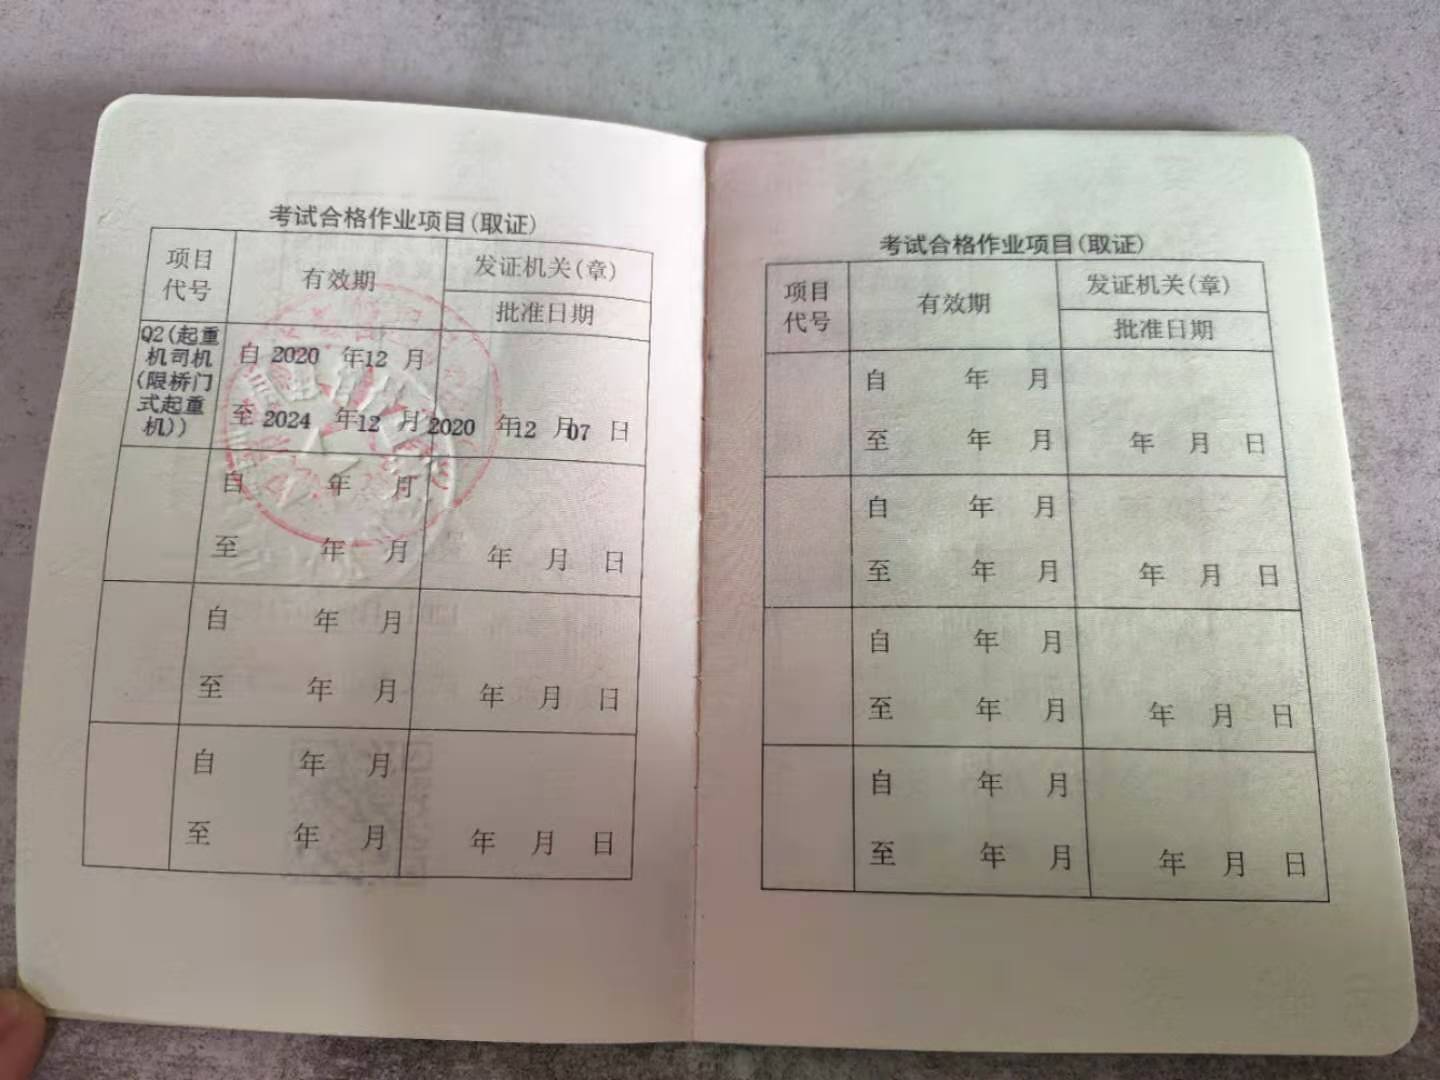 考试合格作业项目(取证)
项目
代号
有效期
发证机关(章)
批准日期
Q2(起重
机司机
(限桥门
式起重
机))
自 2020 年 12 月
至 2024 年 12 月
2020 年 12 月 07 日
自 年 月
至 年 月
年 月 日
自 年 月
至 年 月
年 月 日
自 年 月
至 年 月
年 月 日
考试合格作业项目(取证)
项目
代号
有效期
发证机关(章)
批准日期
自 年 月
至 年 月
年 月 日
自 年 月
至 年 月
年 月 日
自 年 月
至 年 月
年 月 日
自 年 月
至 年 月
年 月 日